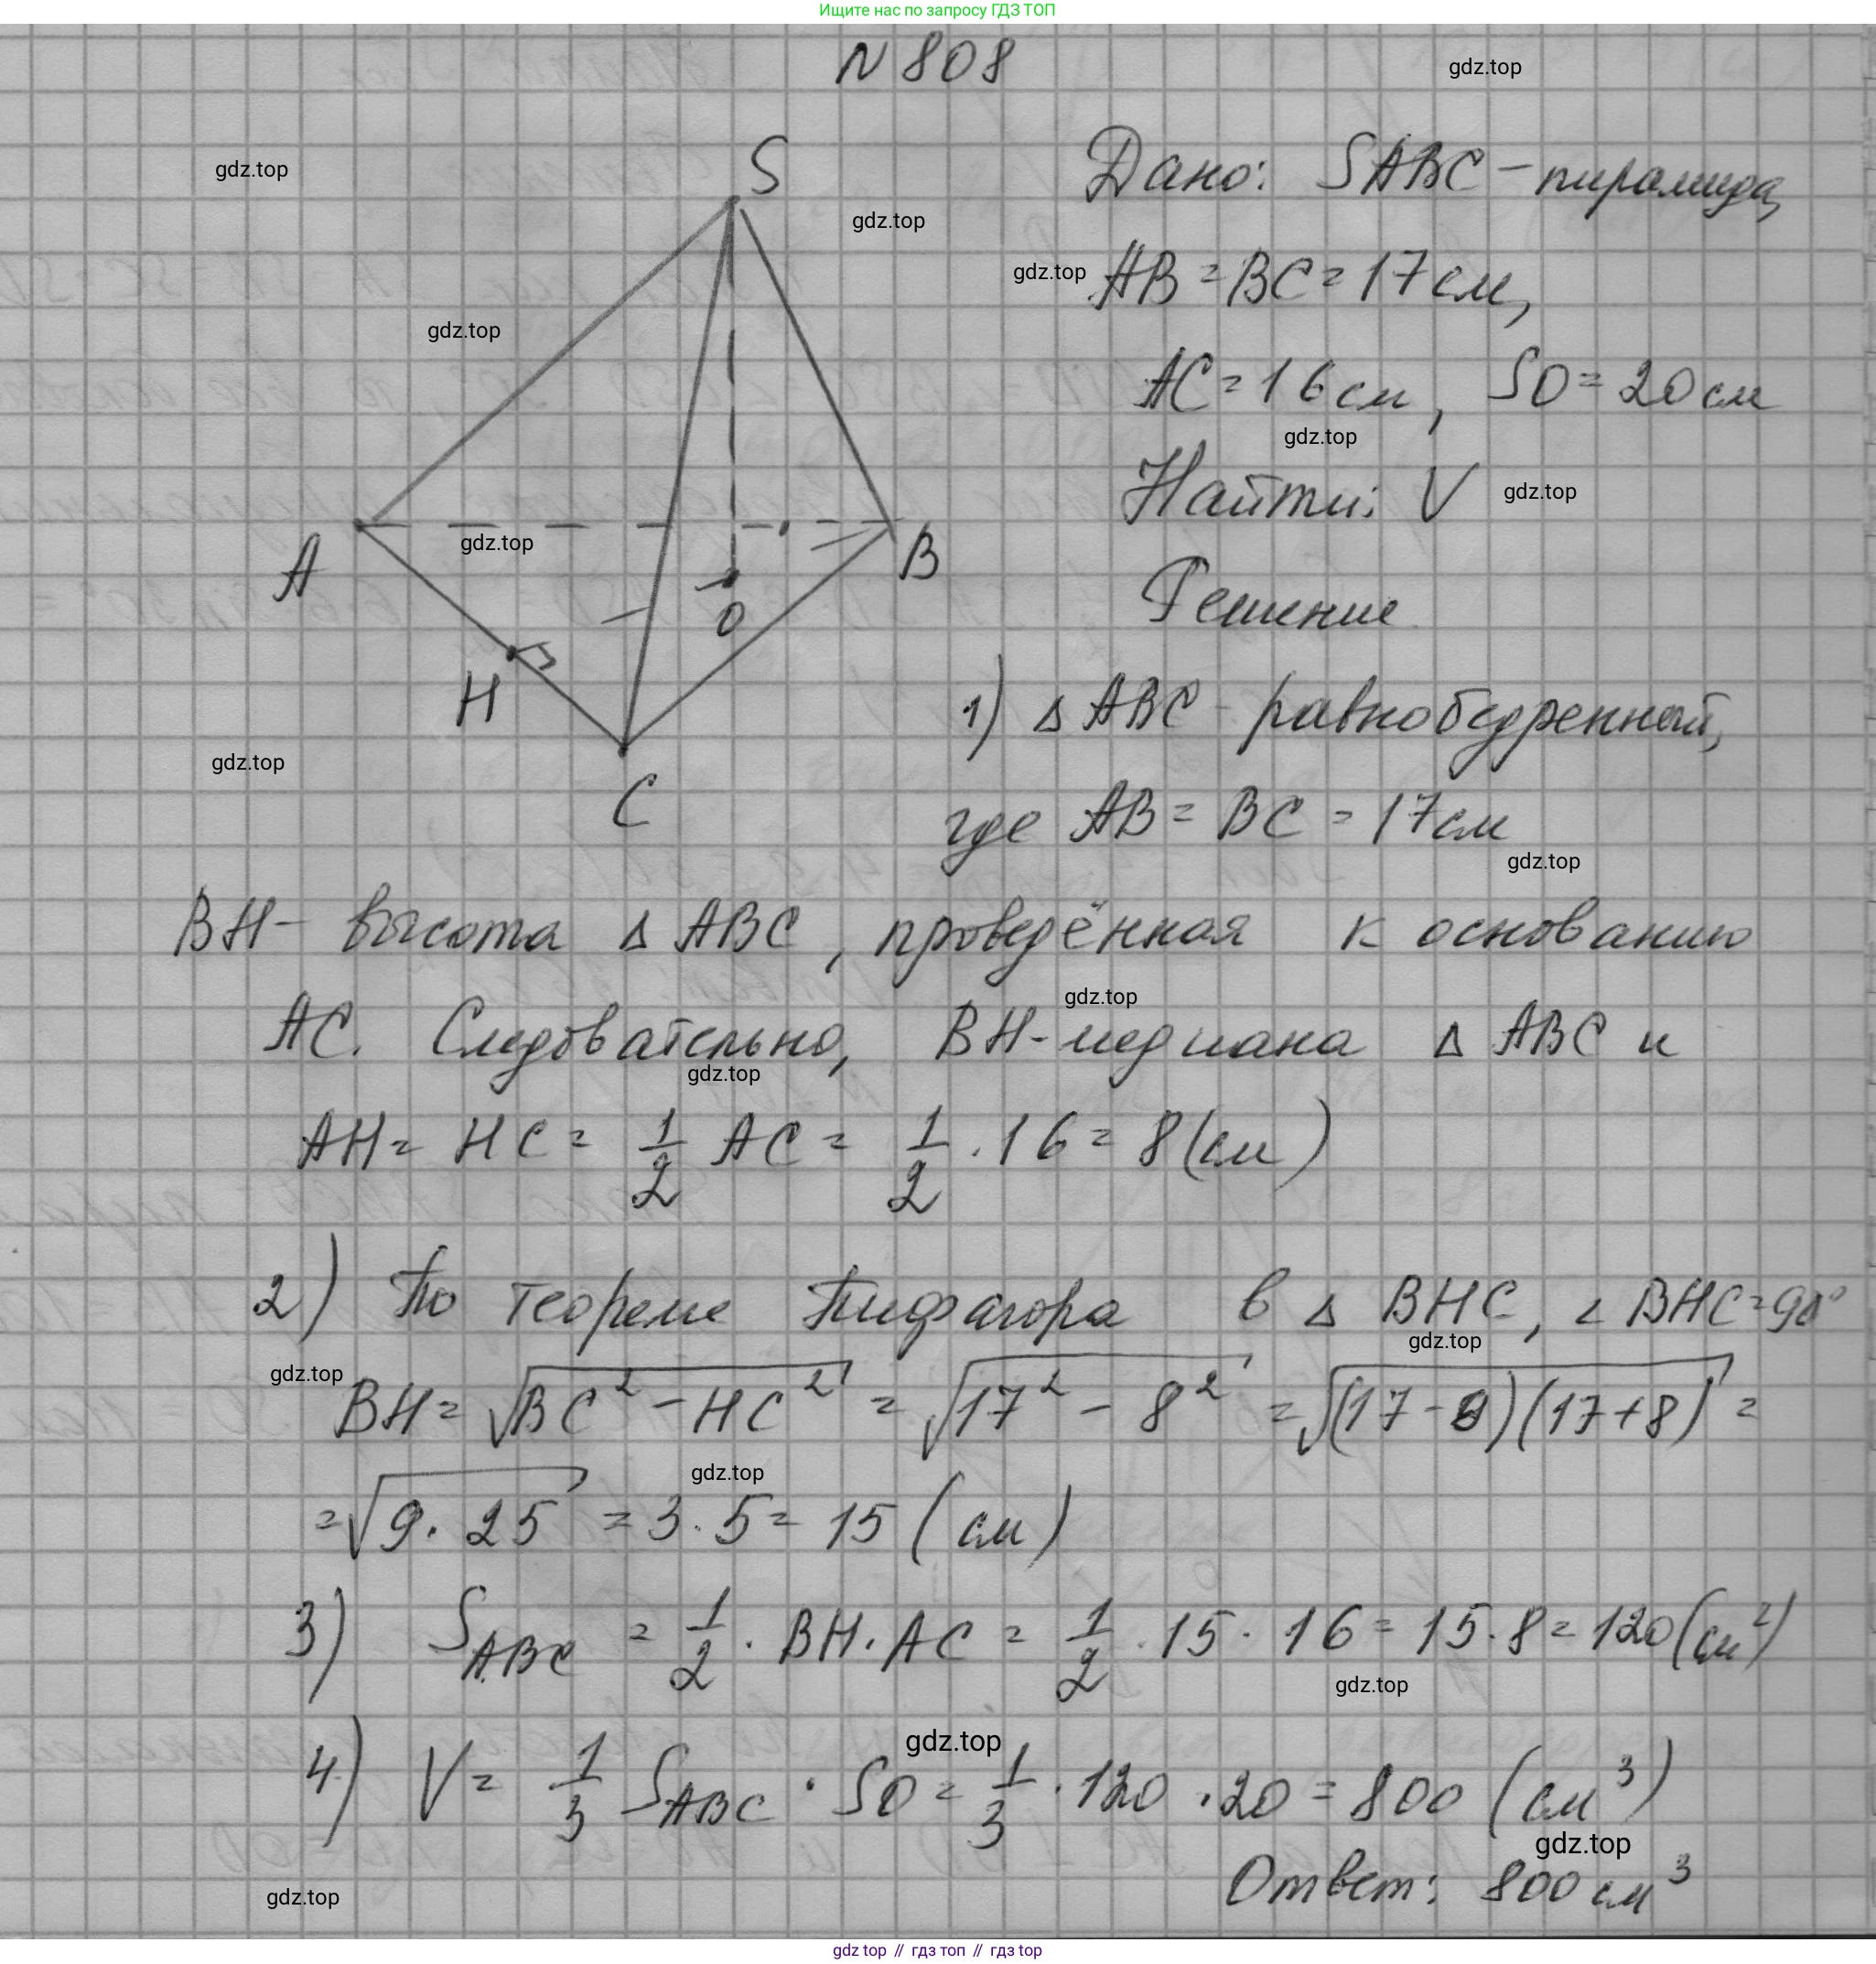 Ищите нас по запросу ГДЗ ТОП
N 808
gdz.top
gdz.top
S
Дано: SABC - пирамида,
gdz.top
gdz.top
AB = BC = 17 см,
gdz.top
AC = 16 см, SO = 20 см
gdz.top
Найти: V
gdz.top
gdz.top
A
B
O
Решение
H
1) Δ ABC - равнобедренный,
gdz.top
C
где AB = BC = 17 см
gdz.top
BH - высота Δ ABC, проведённая к основанию
gdz.top
AC. Следовательно, BH - медиана Δ ABC и
gdz.top
AH = HC = 1/2 AC = 1/2 · 16 = 8 (см)
2) По теореме Пифагора в Δ BHC, ∠ BHC = 90°
gdz.top
gdz.top
BH = √(BC² - HC²) = √(17² - 8²) = √((17 - 8)(17 + 8)) =
gdz.top
= √(9 · 25) = 3 · 5 = 15 (см)
3) S_ABC = 1/2 · BH · AC = 1/2 · 15 · 16 = 15 · 8 = 120 (см²)
gdz.top
gdz.top
4) V = 1/3 S_ABC · SO = 1/3 · 120 · 20 = 800 (см³)
gdz.top
Ответ: 800 см³
gdz.top
gdz top // гдз топ // гдз top